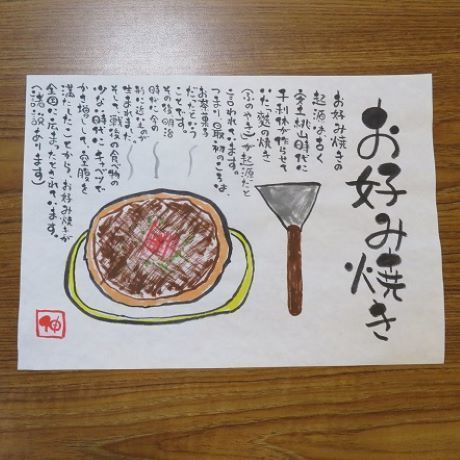 お好み焼き
お好み焼きの
起源は古く
安土桃山時代に
千利休が作らせて
いた「麩の焼き
(ふのやき)」が起源だと
言われています。
つまり最初のころは、
お茶菓子
だったという
ことです。
その後明治
時代に今の
形に近いものが
生まれました。
そして戦後の食べ物の
少ない時代にキャベツで
かさ増しして、空腹を
満たしたことから、お好み焼きが
全国に広まったとされています。
(諸説あります)